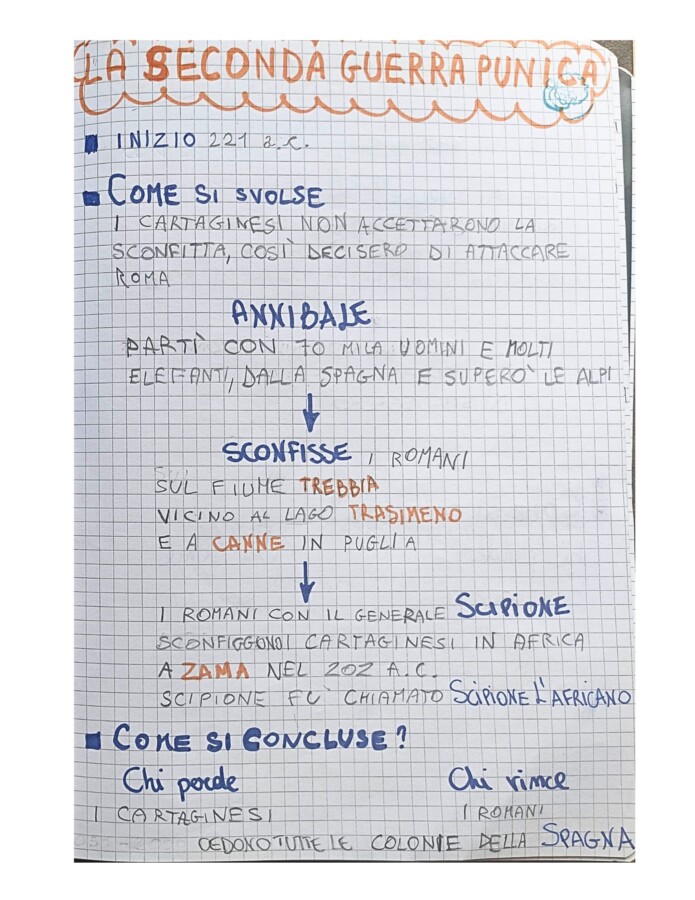 LA SECONDA GUERRA PUNICA
INIZIO 221 a.C.
COME SI SVOLSE
I CARTAGINESI NON ACCETTARONO LA
SCONFITTA, COSÌ DECISERO DI ATTACCARE
ROMA
ANNIBALE
PARTÌ CON 70 MILA UOMINI E MOLTI
ELEFANTI, DALLA SPAGNA E SUPERO' LE ALPI
SCONFISSE I ROMANI
SUL FIUME TREBBIA
VICINO AL LAGO TRASIMENO
E A CANNE IN PUGLIA
I ROMANI CON IL GENERALE SCIPIONE
SCONFIGGONO I CARTAGINESI IN AFRICA
A ZAMA NEL 202 A.C.
SCIPIONE FU' CHIAMATO SCIPIONE L'AFRICANO
COME SI CONCLUSE?
Chi perde Chi vince
I CARTAGINESI I ROMANI
CEDONO TUTTE LE COLONIE DELLA SPAGNA